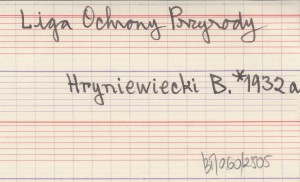 Liga Ochrony Przyrody
Hryniewiecki B. *1932a